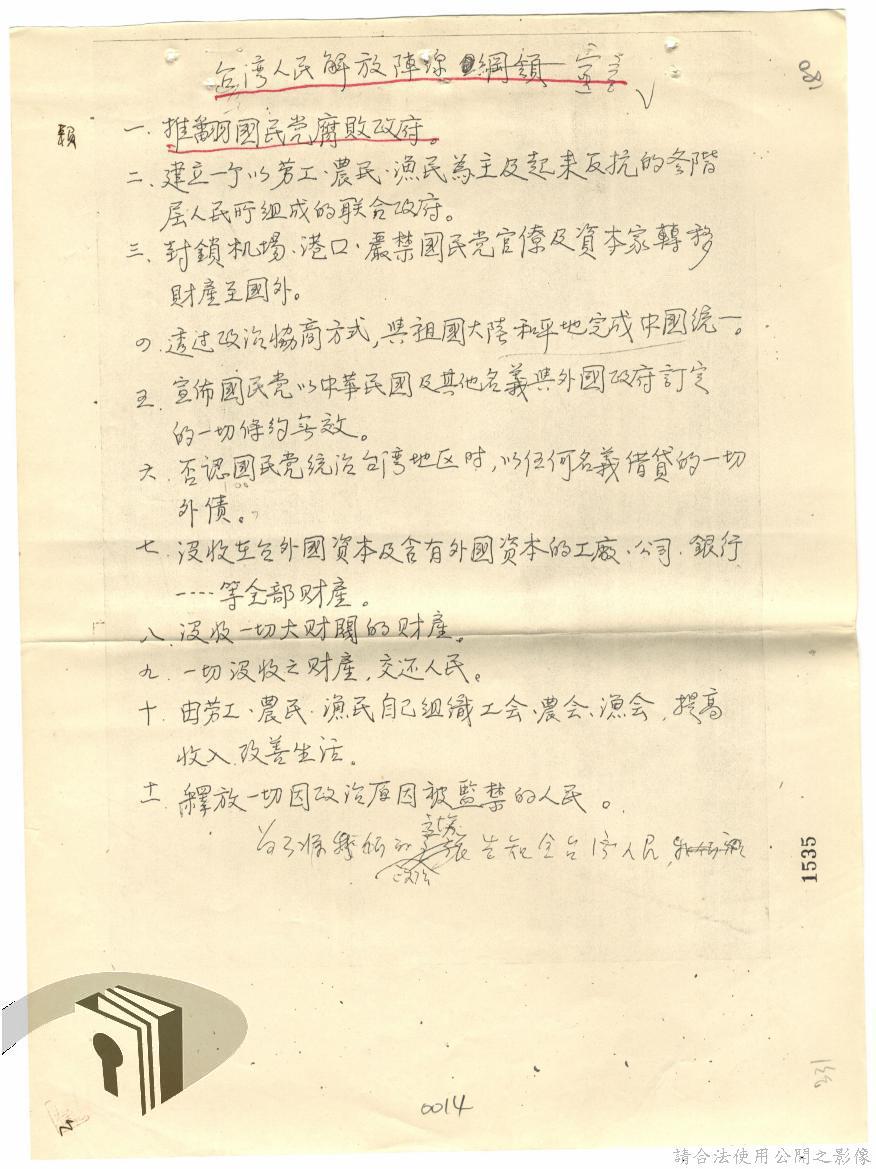 台湾人民解放陣線綱領—宣言
賴
一. 推翻國民党腐敗政府。
二. 建立一个以劳工·農民·漁民為主及起来反抗的各階
层人民所組成的联合政府。
三. 封鎖机場·港口·嚴禁國民党官僚及資本家轉移
財產至國外。
四. 透过政治協商方式,與祖國大陸和平地完成中國統一。
五. 宣佈國民党以中華民國及其他名義與外國政府訂定
的一切條約無效。
六. 否認國民党統治台湾地区时,以任何名義借貸的一切
外債。
七. 沒收在台外國資本及含有外國資本的工廠·公司·銀行
……等全部财產。
八. 沒收一切大财閥的财產。
九. 一切沒收之财產,交还人民。
十. 由劳工·農民·漁民自己組織工会·農会·漁会,提高
收入,改善生活。
十一. 釋放一切因政治原因被監禁的人民。
為了將我們的
告知全台湾人民,
1535
0014
231
請合法使用公開之影像